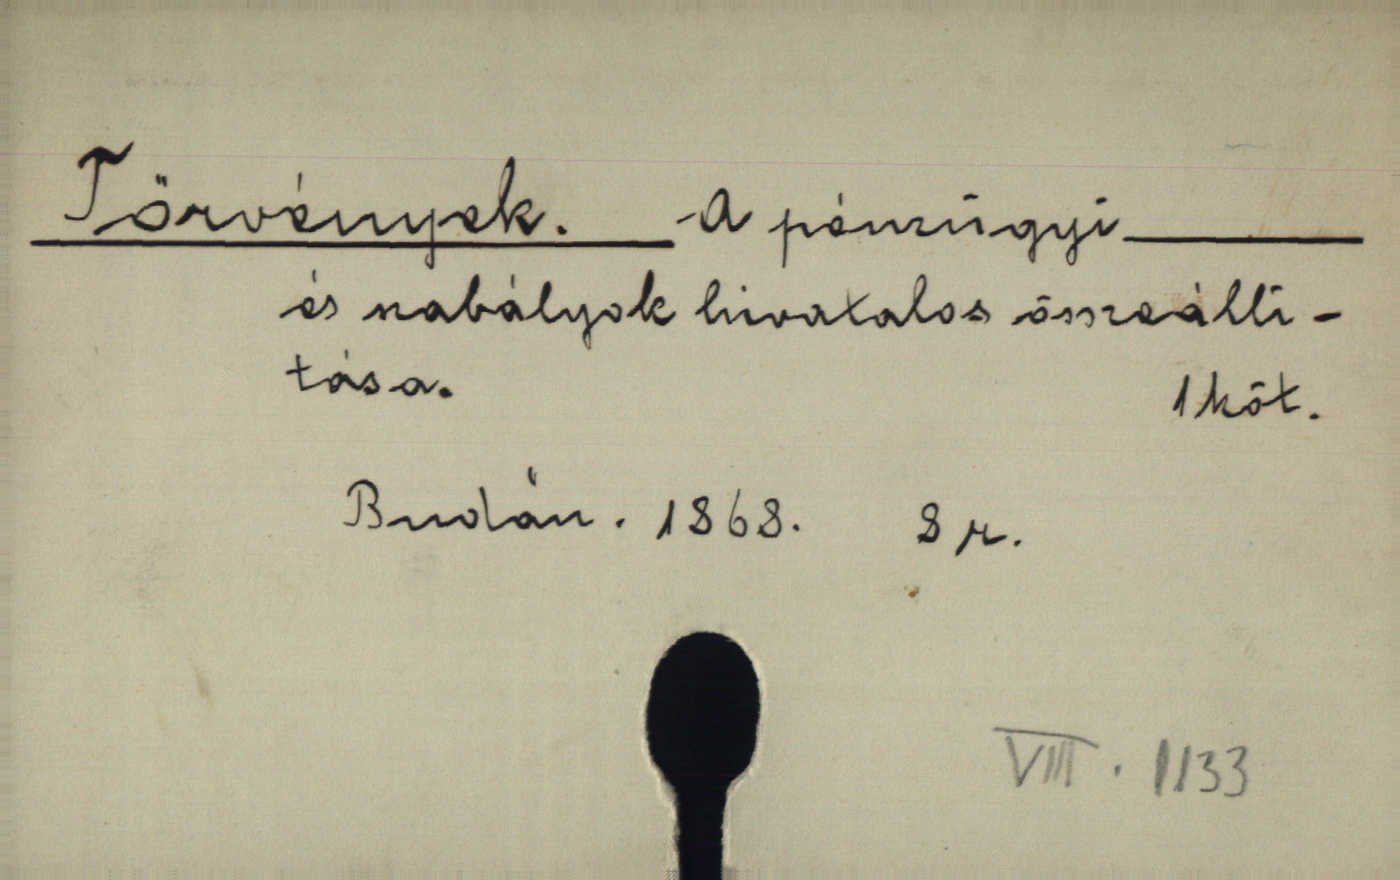 Törvények. A pénzügyi ———
és szabályok hivatalos összeálli-
tása.
1 köt.
Budán. 1868. 8 r.
VIII. 1133